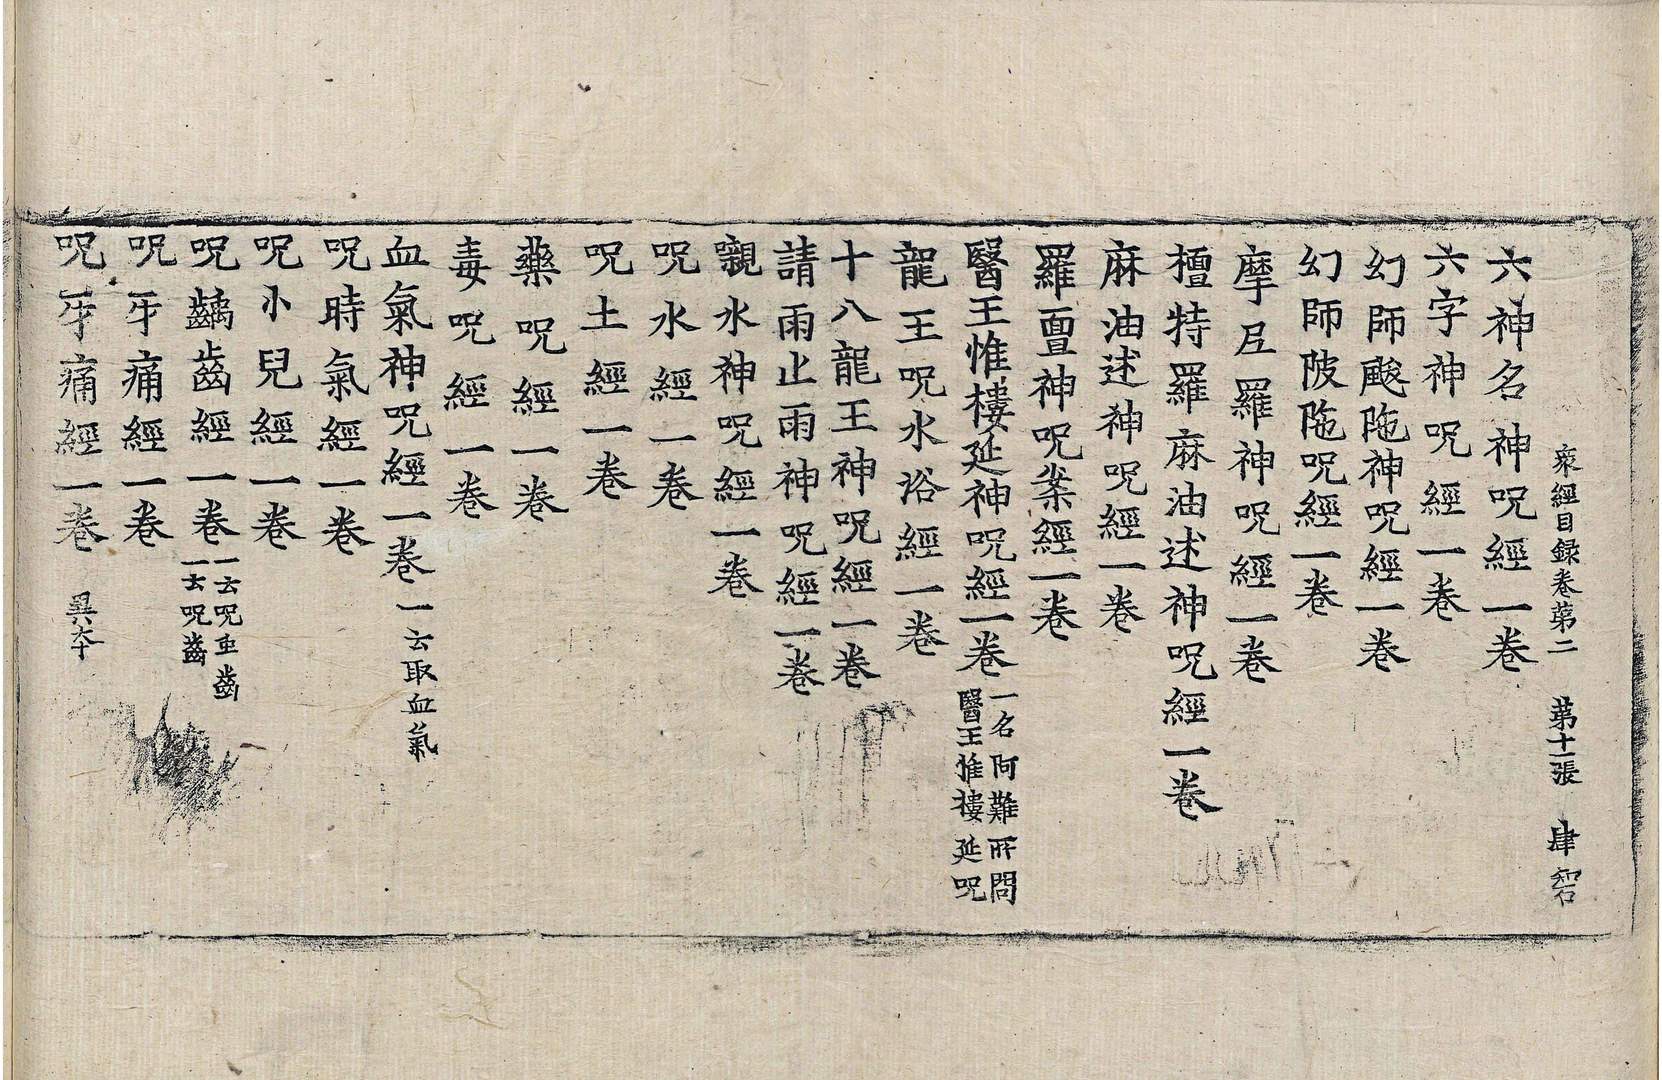 衆經目録卷第二 第十一張 肆 宻
六神名神呪經一卷
六字神呪經一卷
幻師颰陁神呪經一卷
幻師陂陁呪經一卷
摩尼羅神呪經一卷
檀特羅麻油述神呪經一卷
麻油述神呪經一卷
羅亶神呪案經一卷
醫王惟樓延神呪經一卷 一名阿難所問
醫王惟樓延呪
龍王呪水浴經一卷
十八龍王神呪經一卷
請雨止雨神呪經一卷
嚫水神呪經一卷
呪水經一卷
呪土經一卷
藥呪經一卷
毒呪經一卷
血氣神呪經一卷 一云取血氣
呪時氣經一卷
呪小兒經一卷
呪齲齒經一卷 一云呪虫齒
一云呪齒
呪牙痛經一卷
呪牙痛經一卷 異本